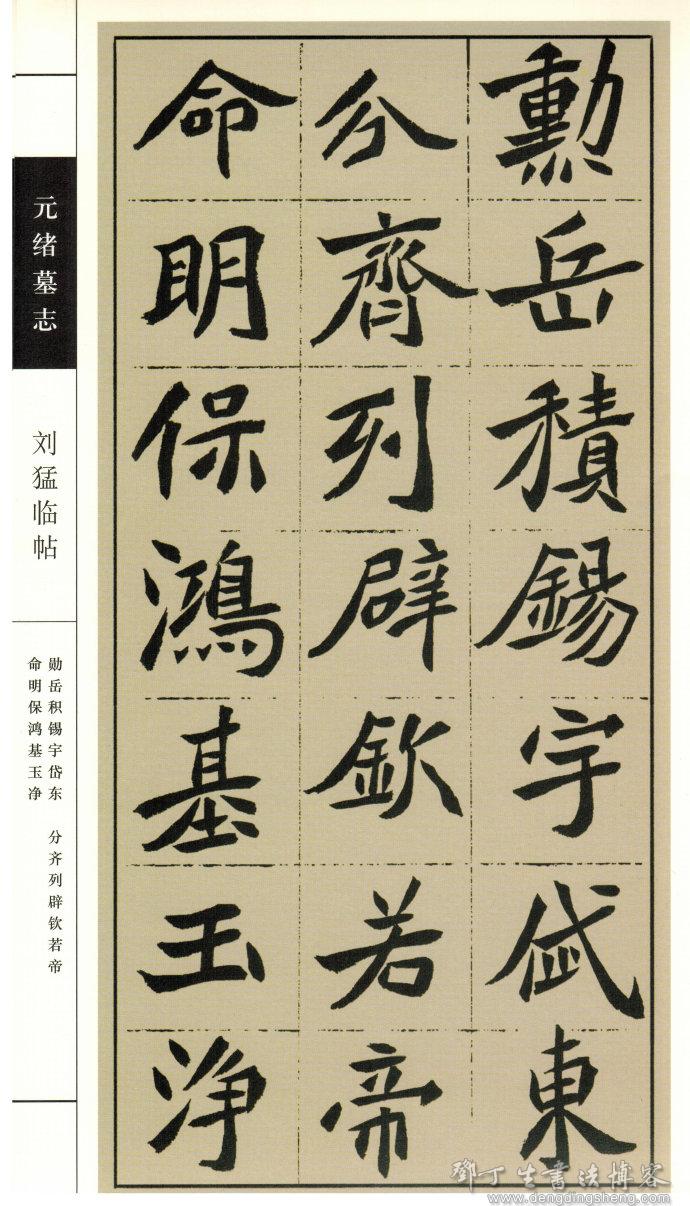 勲岳積錫宇岱東
分齊列辟欽若帝
命明保鴻基玉浄
元绪墓志
刘猛临帖
勋岳积锡宇岱东 分齐列辟钦若帝
命明保鸿基玉净
鄧丁生書法博客
www.dengdingsheng.com